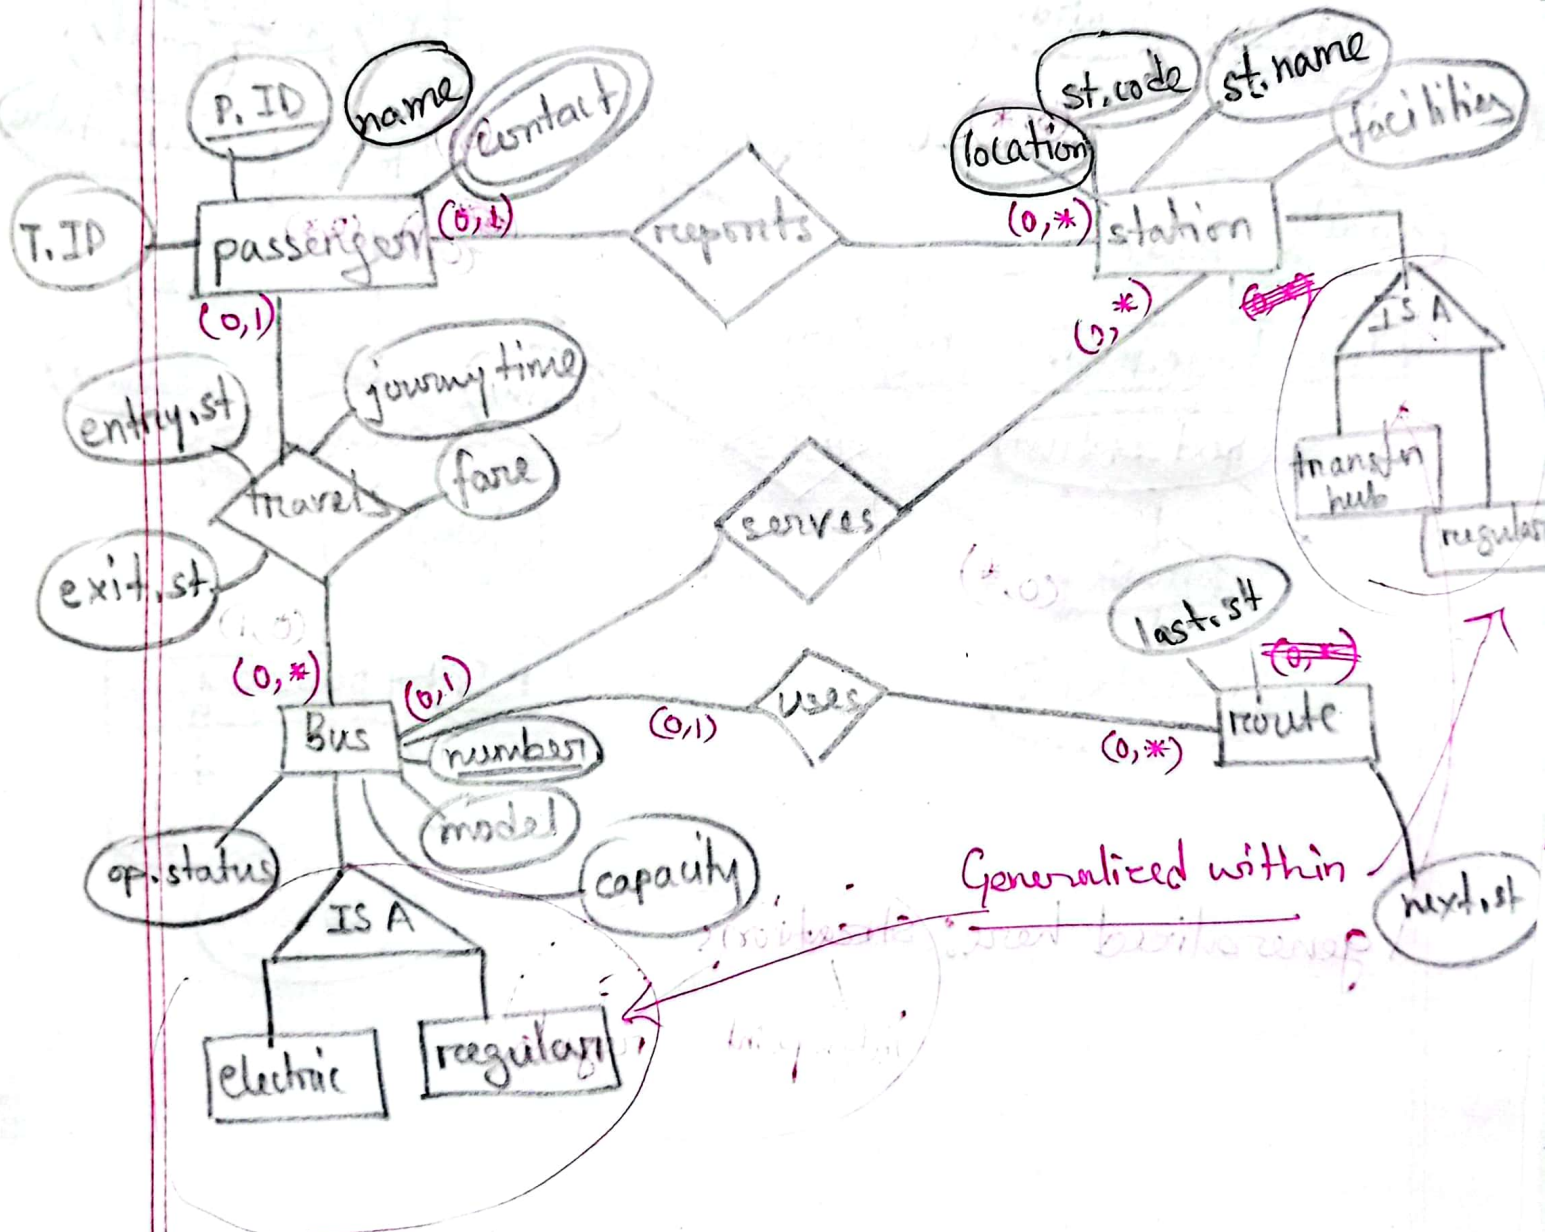 P.ID
name
contact
st.code
st.name
location
facilities
T.ID
passenger
(0,1)
reports
(0,*)
station
(0,1)
(0,*)
IS A
entry.st
fare
travels
serves
hub
regular
exit.st
last.st
(0,*)
(0,*)
(0,1)
Bus
number
(0,1)
uses
(0,*)
route
op.status
model
capacity
Generalized within
next.st
IS A
electric
regular